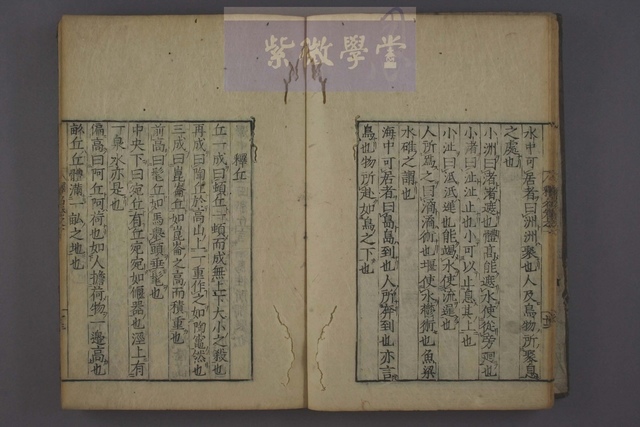 紫微學堂
水中可居者曰洲洲聚也人及鳥物所聚息
之處也
小洲曰渚渚遮也體高能遮水使從旁迴也
小渚曰沚沚止也小可以止息其上也
小沚曰泜泜遲也能遏水使流遲也
人所爲之曰潏潏術也堰使水鬱術也魚梁
水碓之謂也
海中可居者曰島島到也人所奔到也亦言
鳥也物所赴如鳥之下也
釋丘
丘一成曰頓丘一頓而成無上下大小之殺也
再成曰陶丘於高山上一重作之如陶竈然也
三成曰崑崙丘如崑崙之高而積重也
前高曰髦丘如馬舉頭垂髦也
中央下曰宛丘有丘宛宛如偃器也涇上有
一泉水亦是也
偏高曰阿丘阿荷也如人擔荷物一邊高也
畝丘丘體滿一畝之地也